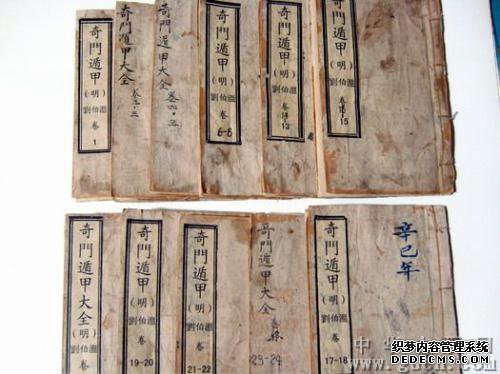 奇門遁甲
(明)
劉伯溫
卷
1
奇門遁甲大全
卷二·三
奇門遁甲大全
卷四·五
奇門遁甲
(明)
劉伯溫
卷
6-6
奇門遁甲
(明)
劉伯溫
卷
13
奇門遁甲
(明)
劉伯溫
卷
15
奇門遁甲大全
(明)
劉伯溫
卷
奇門遁甲
(明)
劉伯溫
卷
19-20
奇門遁甲
(明)
劉伯溫
卷
21-22
奇門遁甲大全
23-24
奇門遁甲
(明)
劉伯溫
卷
17-18
辛巳年
织梦内容管理系统
DEDECMS.COM